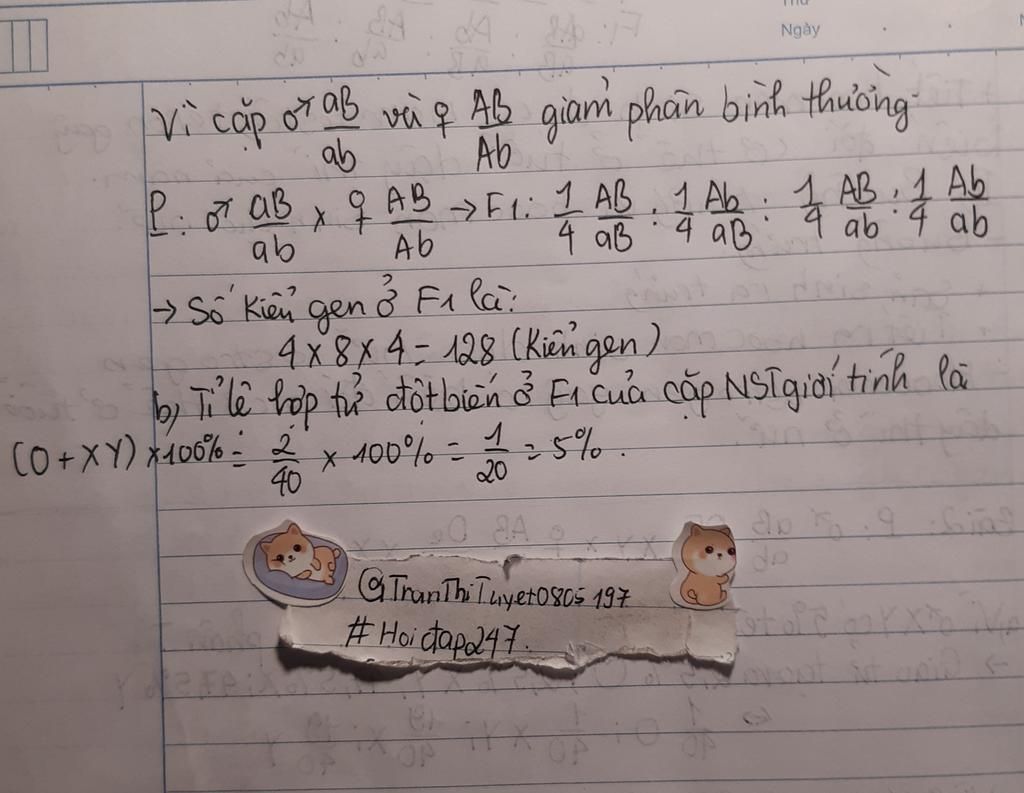 Thứ
Ngày
Vì cặp ♂ aB/ab và ♀ AB/Ab giảm phân bình thường.
P: ♂ aB/ab x ♀ AB/Ab → F1: 1/4 AB/aB : 1/4 Ab/aB : 1/4 AB/ab : 1/4 Ab/ab
→ Số kiểu gen ở F1 là:
4 x 8 x 4 = 128 (kiểu gen)
b) Tỉ lệ hợp tử đột biến ở F1 của cặp NST giới tính là
(O + XY) x 100% = 2/40 x 100% = 1/20 = 5%.
@TranThiTuyet0805197
#Hoidap247.